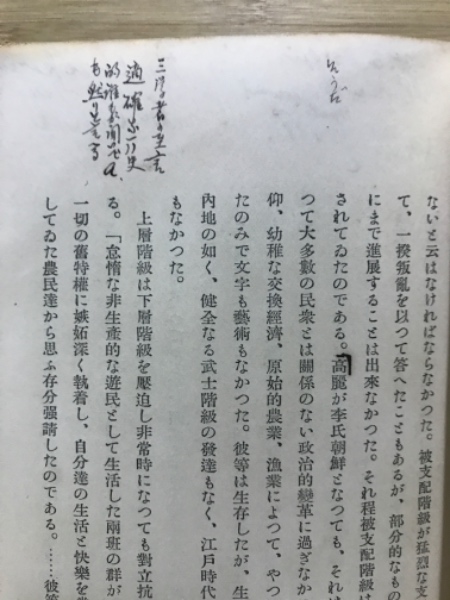 そうだ
ないと云はなければならなかつた。被支配階級が猛烈な支
て、一揆叛亂を以つて答へたこともあるが、部分的なもの
にまで進展することは出來なかつた。それ程被支配階級は
されてゐたのである。高麗が李氏朝鮮となつても、それは
つて大多數の民衆とは關係のない政治的變革に過ぎなか
仰、幼稚な交換經濟、原始的農業、漁業によつて、やつ
たのみで文字も藝術もなかつた。彼等は生存したが、生
內地の如く、健全なる武士階級の發達もなく、江戶時代
もなかつた。
上層階級は下層階級を壓迫し非常時になつても對立抗
る。「怠惰な非生產的な遊民として生活した兩班の群が
一切の舊特權に嫉妬深く執着し、自分達の生活と快樂を
してゐた農民達から思ふ存分强請したのである。……彼等